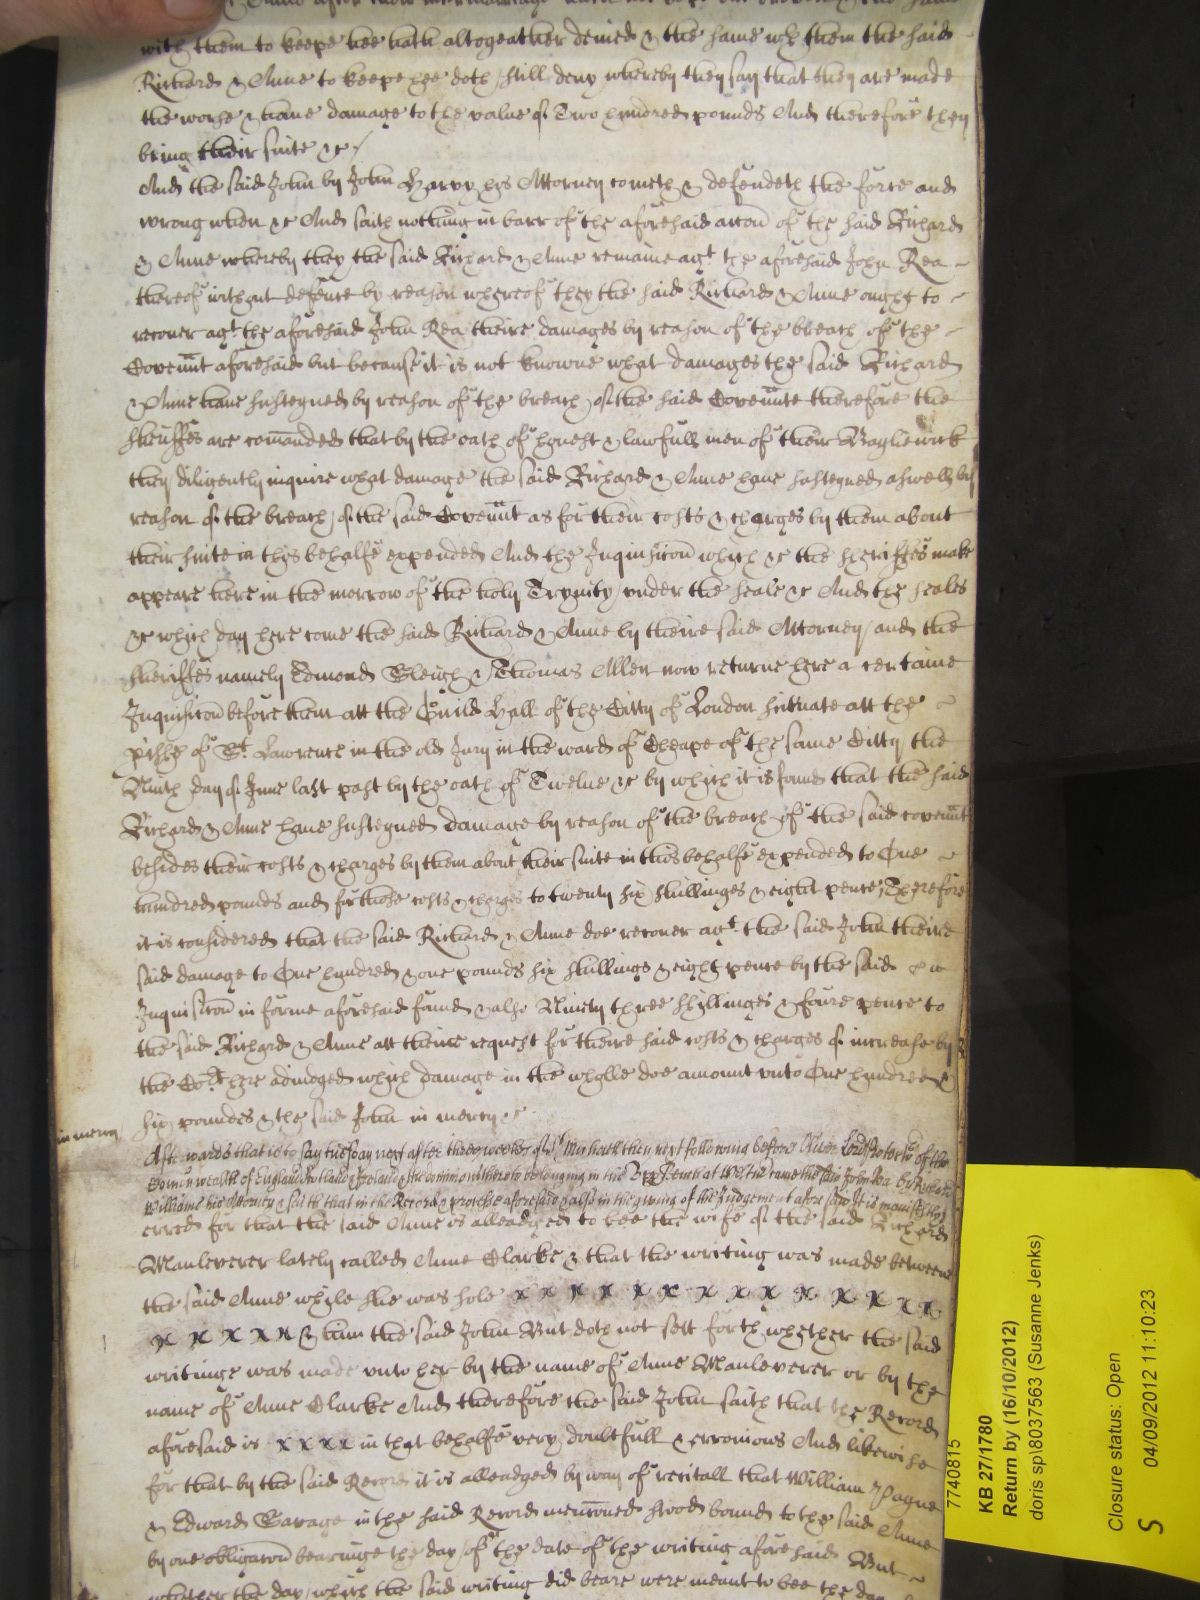 & Anne after their intermarriage
with them to keepe hee hath altogeather denied & the same wth them the said
Richard & Anne to keepe hee doth still deny whereby they say that they are made
the worse & haue damage to the value of Two hundred pounds And therefore they
bring their suite &c /
And the said John by John Harvy his Attorney cometh & defendeth the force and
wrong when &c And saith nothing in barr of the aforesaid accon of the said Richard
& Anne whereby they the said Richard & Anne remaine agt the aforesaid John Rea
thereof without defence by reason whereof they the said Richard & Anne ought to
recouer agt the aforesaid John Rea theire damages by reason of the breach of the
Covennt aforesaid but because it is not knowne what damages the said Richard
& Anne haue susteyned by reason of the breach of the said Covennte therefore the
sheriffes are comanded that by the oath of honest & lawfull men of their Bayliewick
they diligently inquire what damage the said Richard & Anne haue susteyned aswell by
reason of the breach of the said Covennt as for their costs & charges by them about
their suite in this behalfe expended And the Inquisicon which &c the sheriffes make
appeare here in the morrow of the holy Trynity vnder the seale &c And the seales
&c which day here come the said Richard & Anne by theire said Attorney and the
sheriffes namely Edmond Sleigh & Thomas Allen now returne here a certaine
Inquisicon before them att the Guild Hall of the Citty of London scituate att the
pishe of St Lawrence in the old Jury in the ward of Cheape of the same Citty the
Ninth day of June last past by the oath of Twelue &c by which it is found that the said
Richard & Anne haue susteyned damage by reason of the breach of the said covennt
besides their costs & charges by them about their suite in this behalfe expended to One
hundred pounds and for those costs & charges to twenty six shillinges & eight pence Therefore
it is considered that the said Richard & Anne doe recouer agt the said John theire
said damage to One hundred & one pounds six shillings & eight pence by the said
Inquisicon in forme aforesaid found & also Ninety three shyllinges & foure pence to
the said Richard & Anne att theire request for theire said costs & charges of increase by
the Cort here adiudged which damage in the wholle doe amount vnto One hundred &
six poundes & the said John in mercy &c
in mercy
Afterwards that is to say tuesday next after three weekes of St Michaell then next following before Oliuer Lord Protector of the
Comon wealth of England Scotland & Ireland & the dominions thereto belonging in the Vpper Bench at Westmr came the said John Rea by Richard
Williams his Attorney & saith that in the Record & processe aforesaid & also in the giuing of the Judgement aforesaid it is manifestly
erred for that the said Anne is alleadged to bee the wife of the said Richard
Manleverer lately called Anne Clarke & that the writing was made betweene
the said Anne whyle she was sole x x x x x x x x x x x x x x
x x x x x & him the said John But doth not sett forth whether the said
writinge was made vnto her by the name of Anne Manleverer or by the
name of Anne Clarke And therefore the said John saith that the Record
aforesaid is x x x x in that behalfe very doubtfull & erronious And likewise
for that by the said Record it is alleadged by way of recitall that William Pague
& Edward Savage in the said Record menconed stood bound to the said Anne
by one obligacon bearinge the day of the date of the writing aforesaid But
whether the day which the said writing did beare were meant to bee the day
7740815
KB 27/1780
Return by (16/10/2012)
doris sp\8037563 (Susanne Jenks)
Closure status: Open
S 04/09/2012 11:10:23